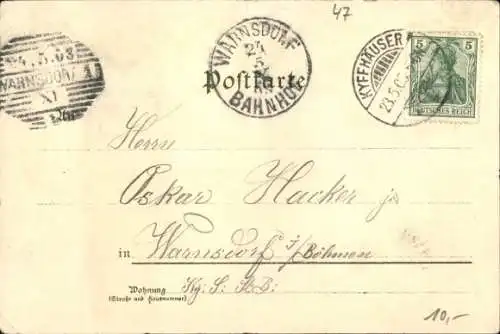 47
24.5.03
WARNSDORF 1
XI
WARNSDORF
24
5
BAHNHOF
KYFFHÄUSER
23.5.03
5 5
DEUTSCHES REICH
Postkarte
Herrn
Oskar Hacker jr
in Warnsdorf i/Böhmen
Wohnung
(Straße und Hausnummer)
Kg: S: BB:
10,-